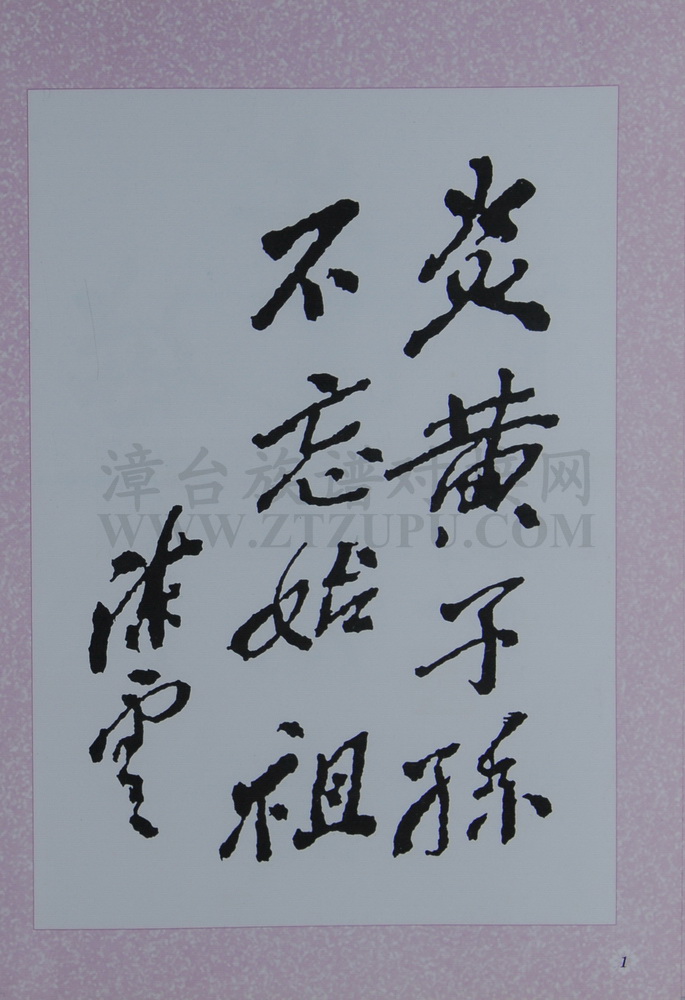 炎黄子孫
不忘始祖
陈雲
漳台族谱对接网
WWW.ZTZUPU.COM
1